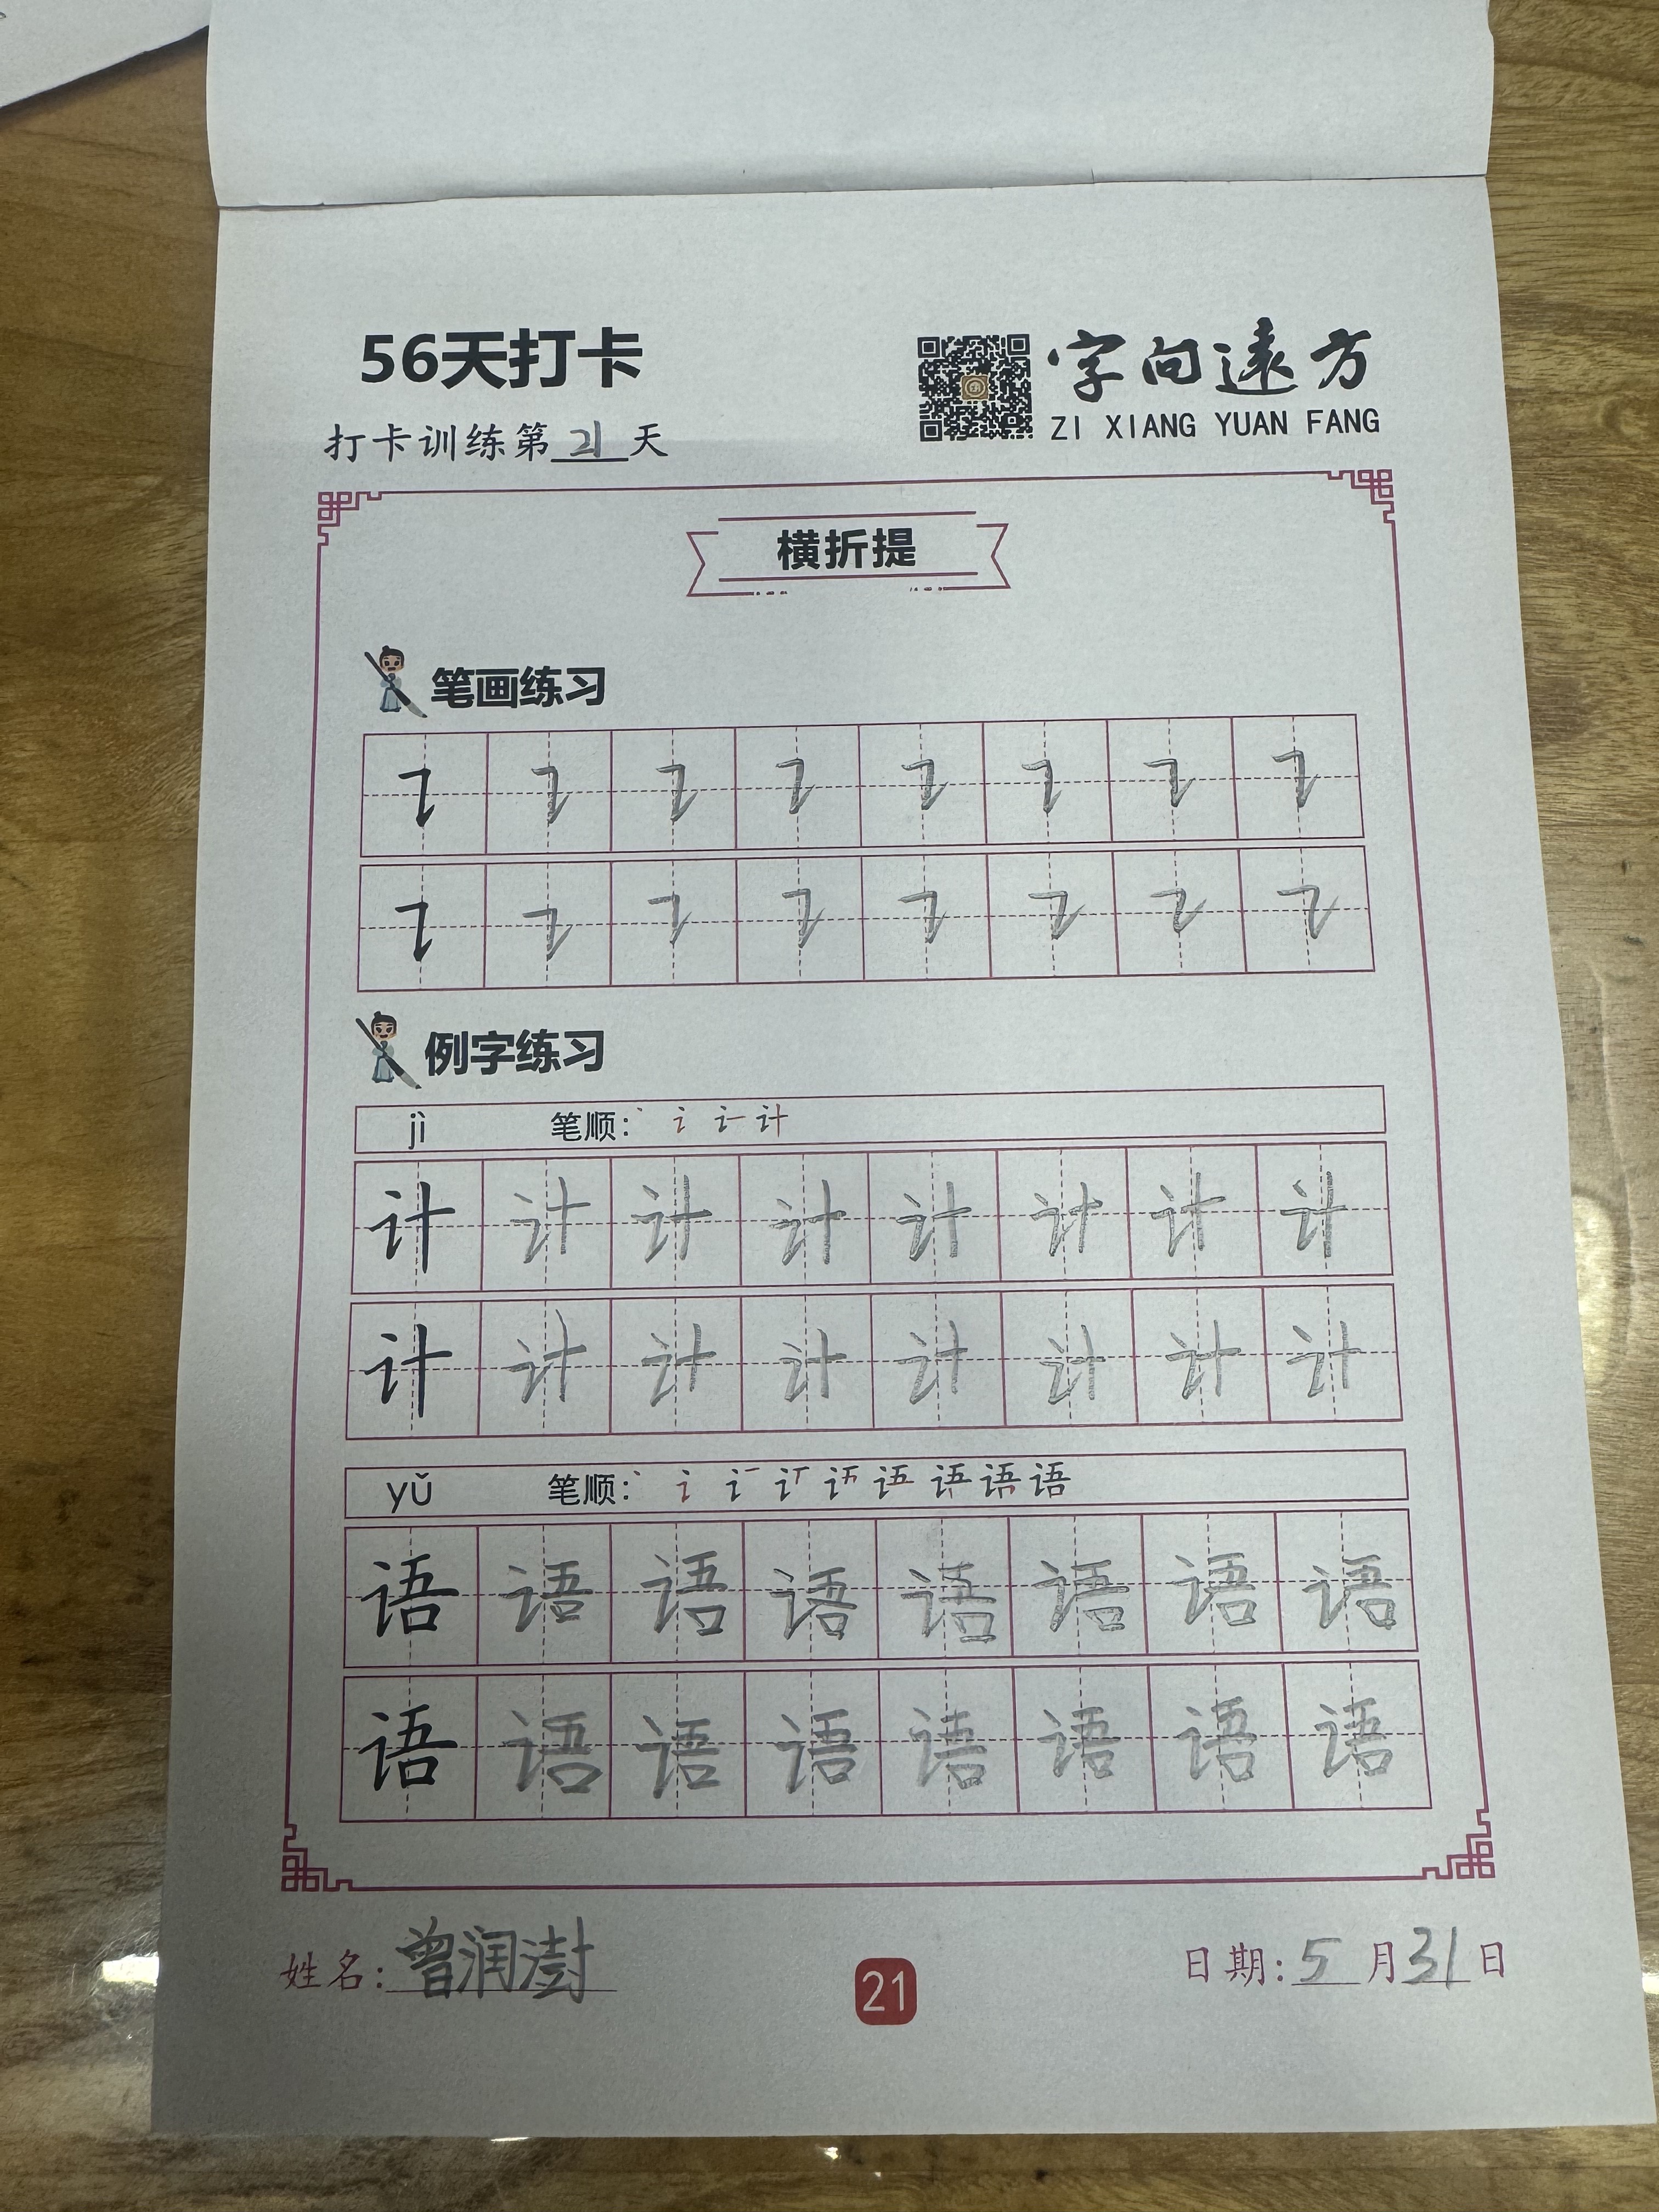 56天打卡
字向遠方
ZI XIANG YUAN FANG
打卡训练第21天
横折提
笔画练习
例字练习
jì 笔顺：
计 计 计 计 计 计 计 计
计 计 计 计 计 计 计 计
yǔ 笔顺： 语
语 语 语 语 语 语 语 语
语 语 语 语 语 语 语 语
姓名：曾润澍
21
日期：5月31日